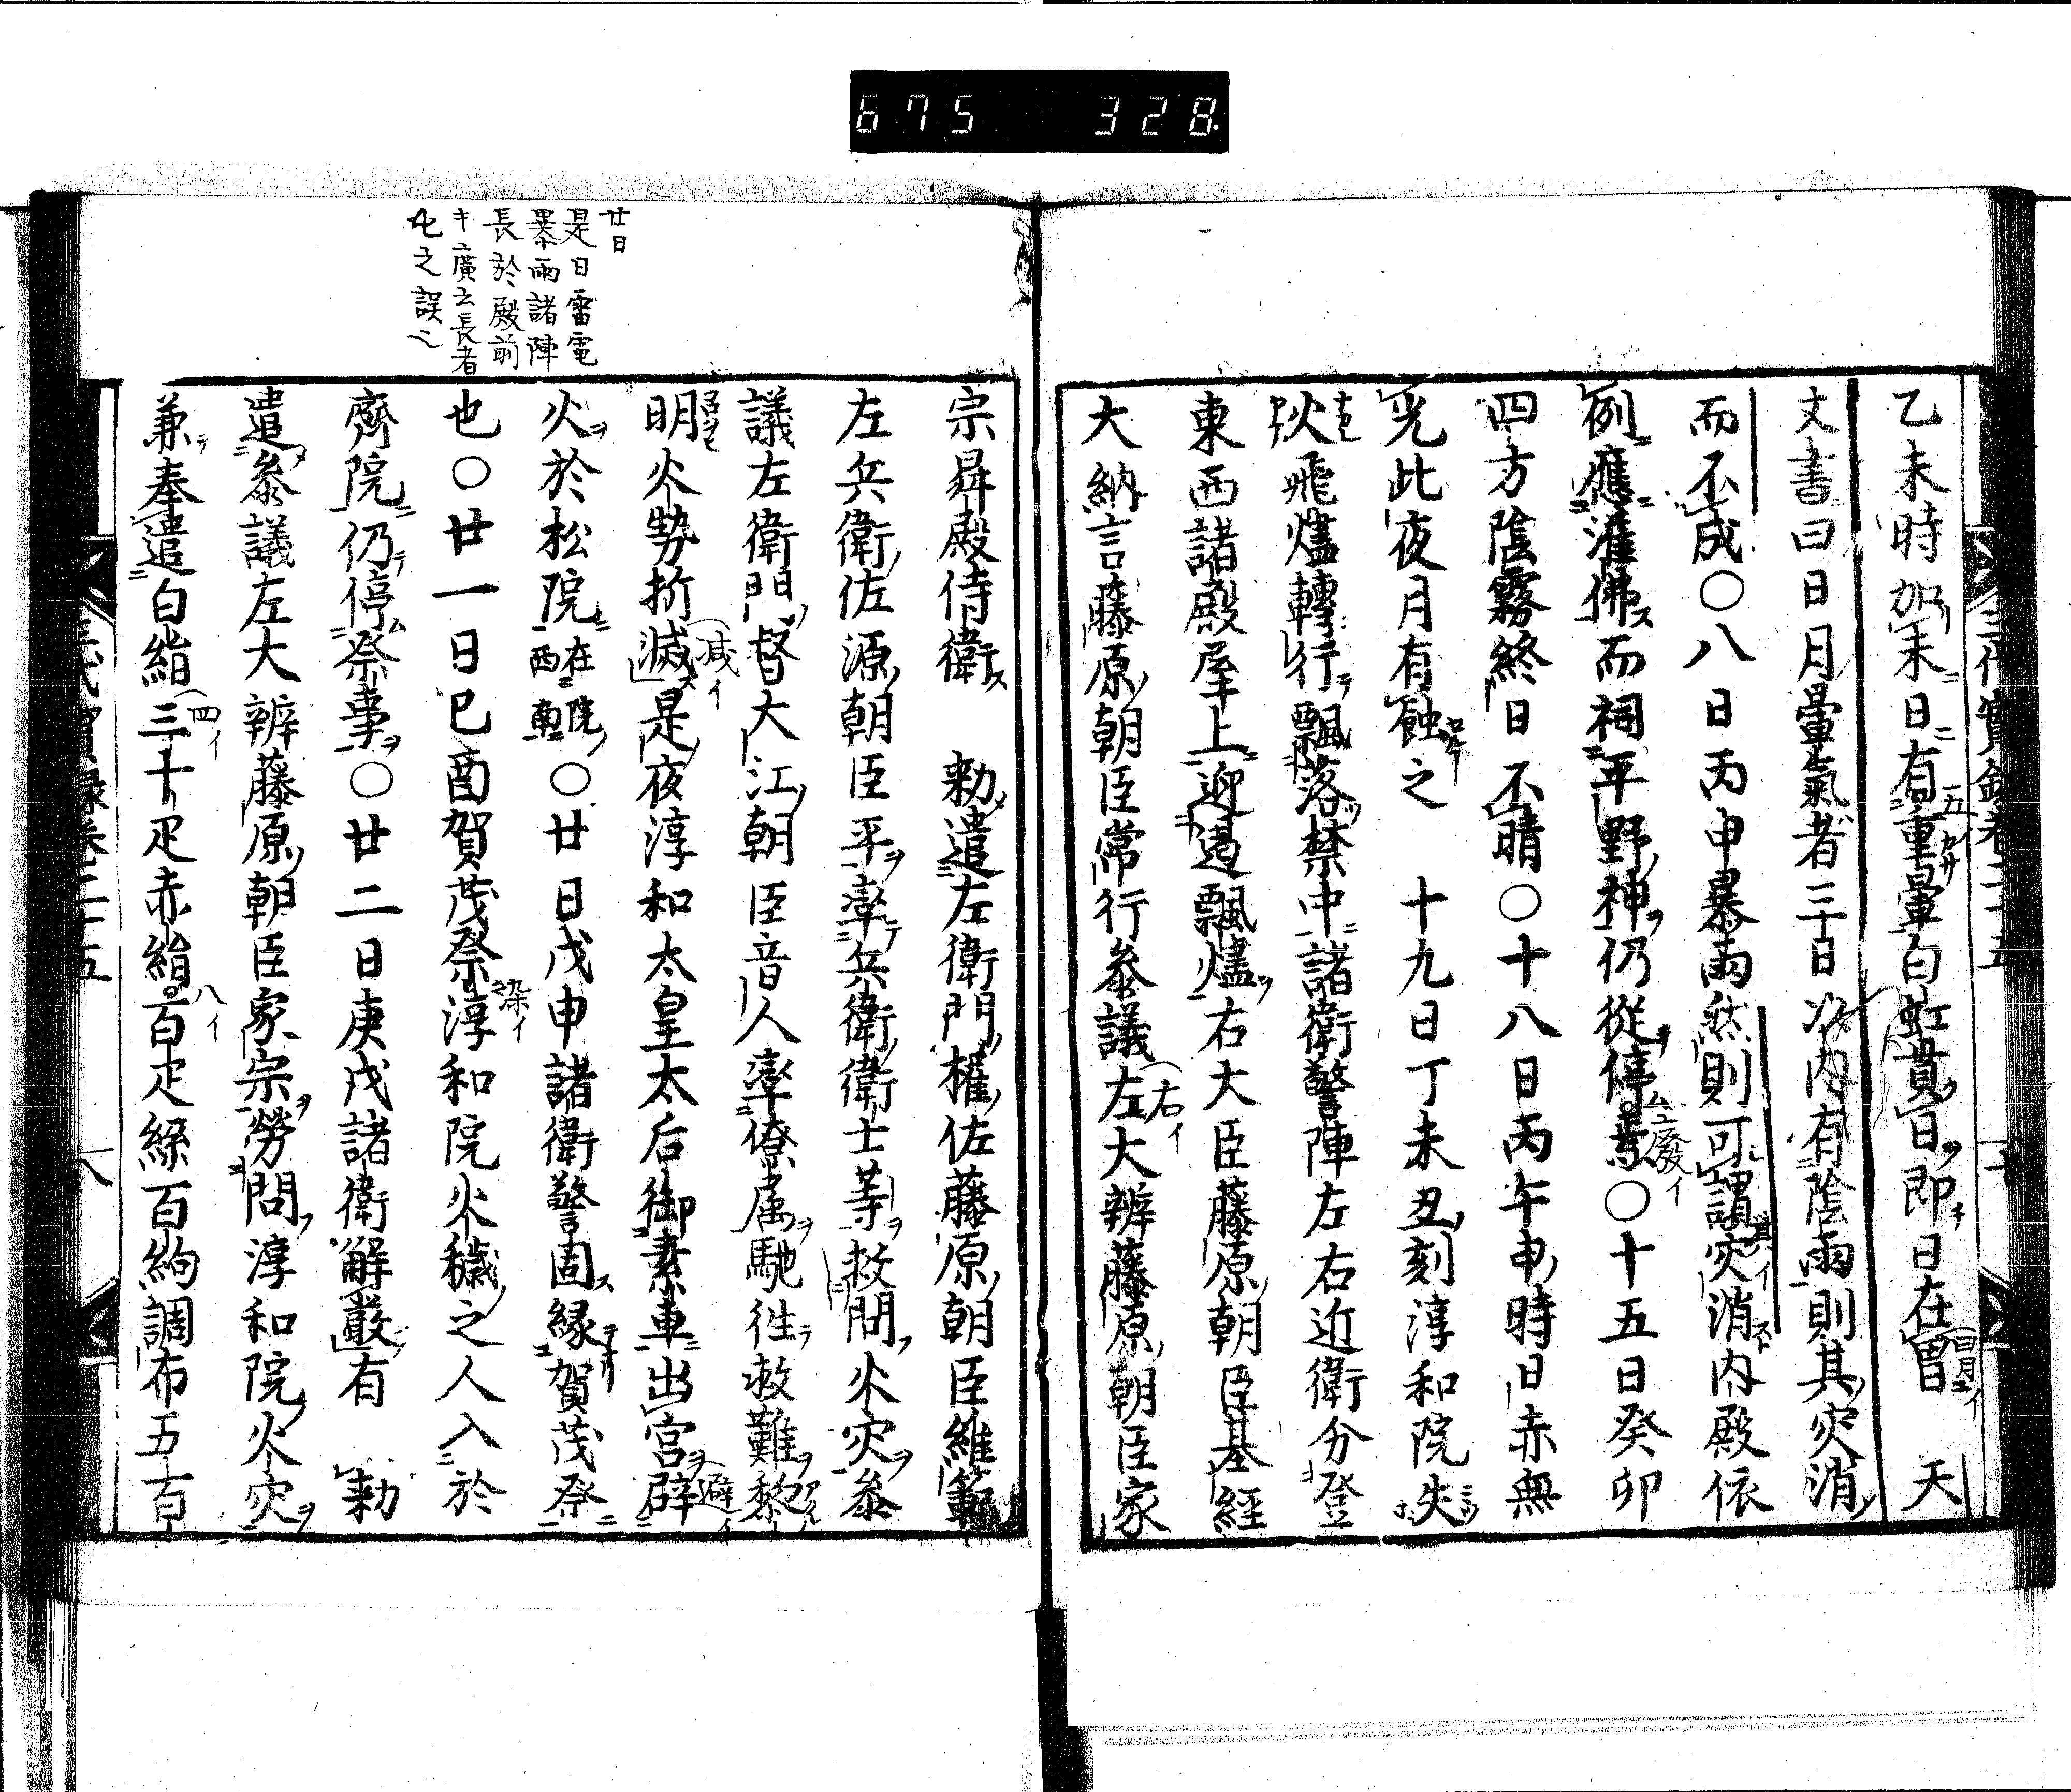 675 328
乙未時加未日有重暈白虹貫日即日在胃 天
文書曰日月暈氣者三日以内有陰雨則其灾消
而不成〇八日丙申暴雨然則可謂灾消内殿依
例應灌佛而祠平野神仍從停焉〇十五日癸卯
四方陰霧終日不晴〇十八日丙午申時日赤無
光此夜月有蝕之 十九日丁未丑刻淳和院失
火飛燼轉行飄落禁中諸衛警陣左右近衛分登
東西諸殿屋上迎遏飄燼右大臣藤原朝臣基經
大納言藤原朝臣常行参議左大辨藤原朝臣家
宗昇殿侍衛 勅遣左衛門權佐藤原朝臣維範
左兵衛佐源朝臣平率兵衛衛士等救問火灾参
議左衛門督大江朝臣音人率僚属馳徃救難黎
明火勢折滅是夜淳和太皇太后御素車出宮辟
火於松院在院西南〇廿日戊申諸衛警固縁賀茂祭
也〇廿一日巳酉賀茂祭淳和院火穢之人入於
齊院仍停祭事〇廿二日庚戌諸衛解嚴有 勅
遣参議左大辨藤原朝臣家宗勞問淳和院火灾
兼奉遣白絁三十疋赤絁百疋絲百絇調布五百
廿日
是日雷電
暴雨諸陣
長於殿前
キ廣云長者
屯之誤